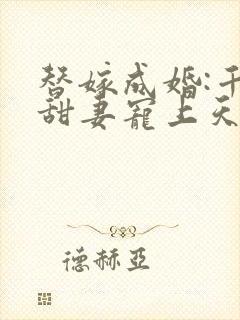 替嫁成婚:千
甜妻宠上天
德赫亞